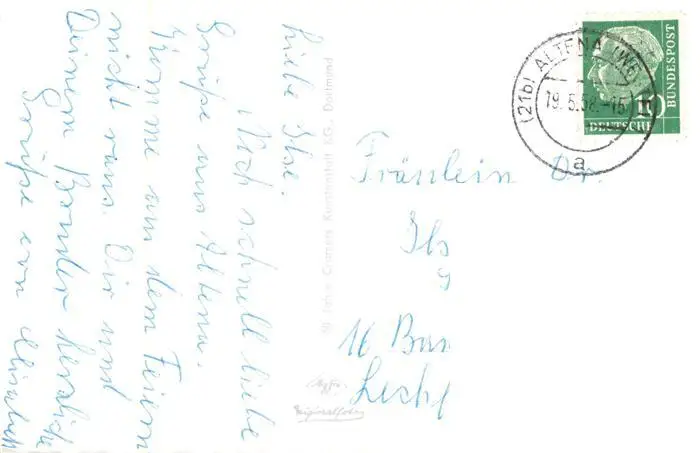 Liebe Ilse.
Noch schnell liebe
Grüße aus Altena.
Komme aus dem Feiern
nicht raus. Dir und
Deinem Bruder herzliche
Grüße von
50 Jahre Cramers Kunstanstalt KG., Dortmund
(21b) ALTENA (WESTF)
19.5.58.-15
a
10
DEUTSCHE
BUNDESPOST
Fräulein Dr.
Ils
16 Ban
Lech
Agfa
Originalfoto